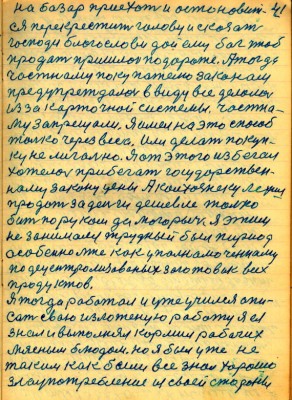 на базар приехот и остоновит- 41
ся перекрестит голову и сказат
господи благослови дой ему бог чтоб
продат пришлос подороге. А тогда
частному покупателю законам
предупреждалос ввиду все делалос
из за карточной системы. частна-
му запрещали. Я имел на это способ
толко через весы. Или делат покуп-
ку не лигално. Я от этого избегал
хотелос прибегат государствен-
наму закону цены А колхознику
продат за денги дешевле толко
бит по рукам да
не занимался трудный был период
особенно мне как уполнамоченному
по децентролизованых заготовак всех
продуктов.
Я тогда работал и уже учился опи-
сат свою изложеную работу я ел
знал и выполнял кормил рабочих
мясным блюдом. но я был уже не
таким как были все знал хорошо
злоупотребление из своей стороны